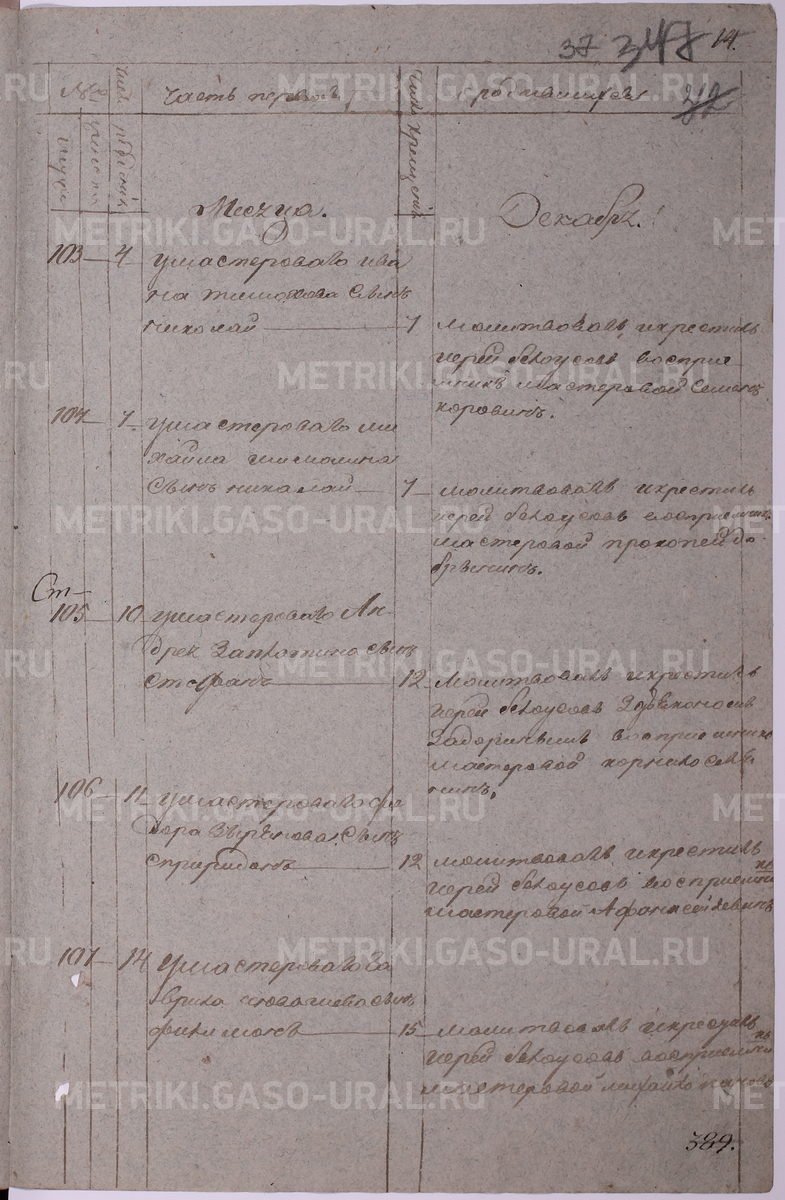 37 347 14.
212
Часть первая
родившихся
число крещенiя
Месяца.
Декабрь.
103 4 у мастероваго ива
на тимохова сынъ
николай 7 молитвовалъ и крестилъ
иерей белоусовъ восприе
мникъ мастеровой Семенъ
коровинъ.
104 7 у мастероваго ми
хаила
сынъ николай 7 молитвовалъ и крестилъ
иерей белоусовъ восприемник
мастеровой прокопей до
брынинъ.
Ст
105 10 у мастероваго Ан
дрея Заплатина сынъ
стефанъ 12 молитвовалъ и крестилъ
иерей белоусовъ з дьякономъ
Задоринымъ восприемникъ
мастеровой
нинъ.
106 11 у мастероваго фе
дора Зырянова сынъ
спиридонъ 12 молитвовалъ и крестилъ
иерей белоусовъ восприемникъ
мастеровой Афанасей
107 14 у мастероваго га
врила сынъ
филимонъ 15 молитвовалъ и крестилъ
иерей белоусовъ восприемникъ
мастеровой михайло
389.
METRIKI.GASO-URAL.RU